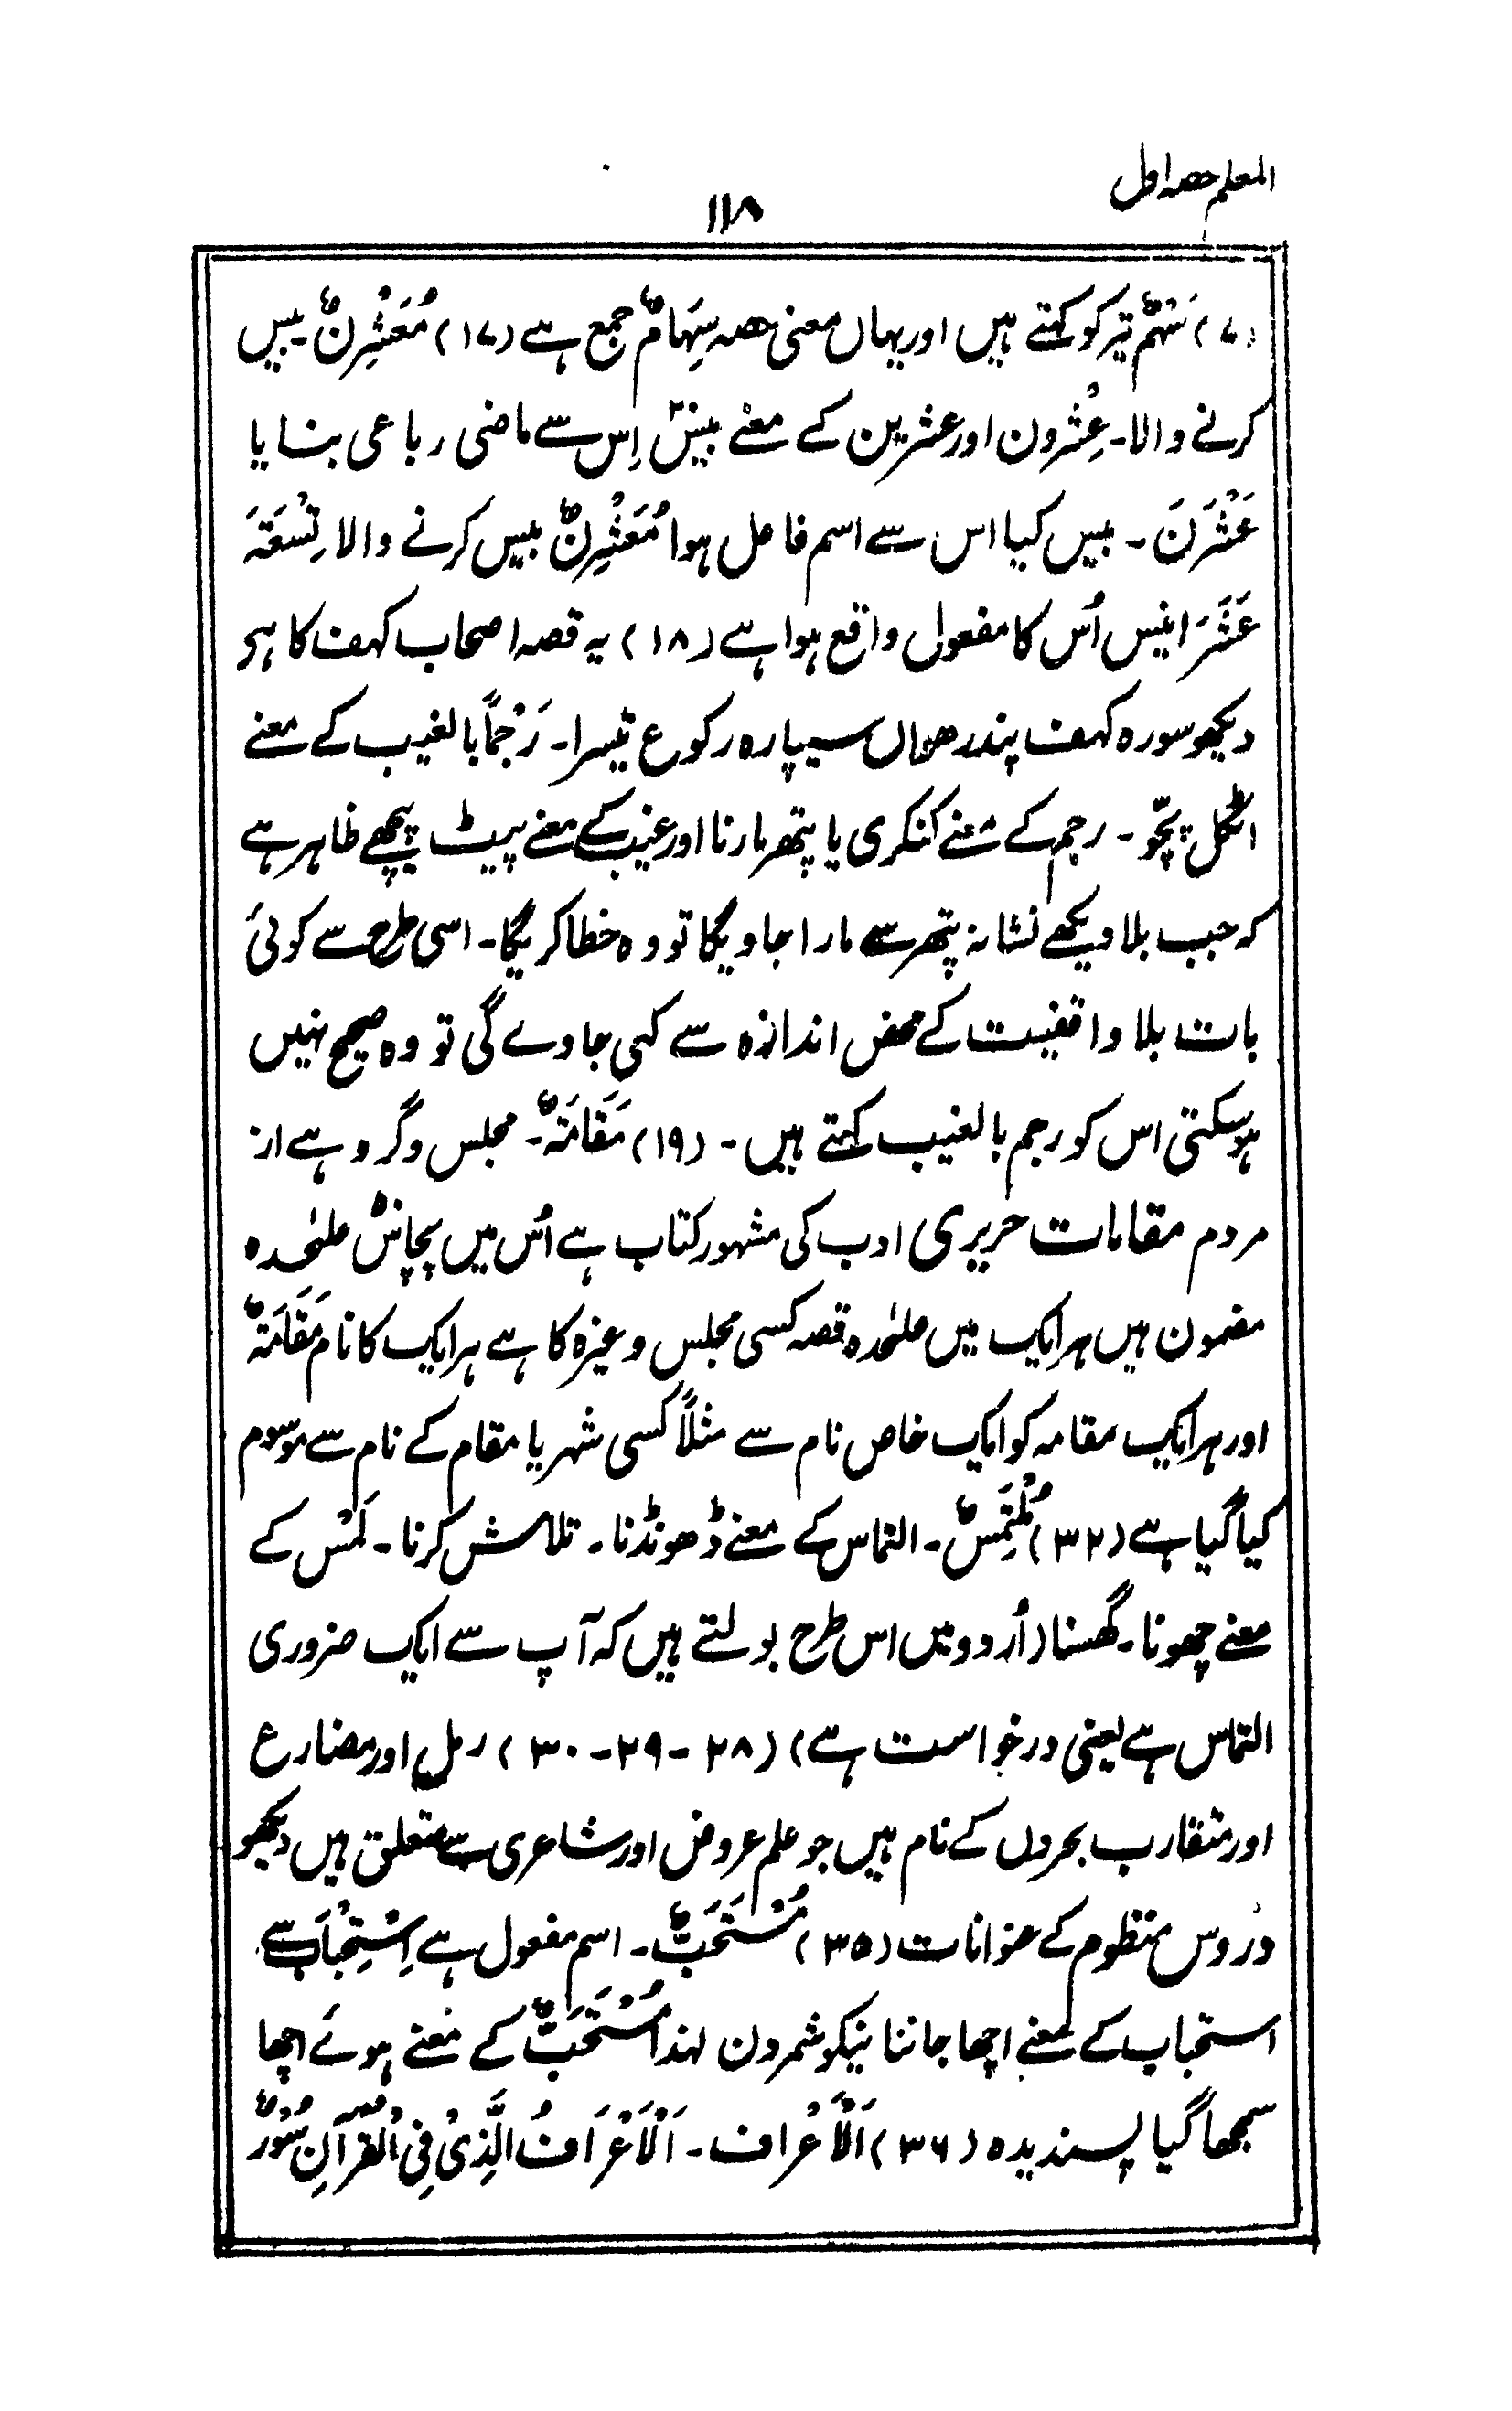 المعلم حصہ اول
۱۱۸
(۷) سَہْمٌ تیر کو کہتے ہیں اور یہاں معنی حصہ سِہَامٌ جمع ہے (۱۷) مُعَشْرِنٌ۔ بیس
کرنے والا۔ عِشْرون اور عشرین کے معنے بیسؔ اِس سے ماضی رباعی بنایا
عَشْرَنَ ۔ بیس کیا اس سے اسم فاعل ہوا مُعَشْرِنٌ بیس کرنے والا تِسْعَۃَ
عَشَرَ انیس اُس کا مفعول واقع ہوا ہے (۱۸) یہ قصہ اصحاب کہف کا ہے
دیکھو سورہ کہف پندرھواں سیپارہ رکوع تیسرا۔ رَجْمًا بالغیب کے معنے
اٹکل پچّو ۔ رجم کے معنے کنکری یا پتھر مارنا اور غیب کے معنے پیٹ پیچھے ظاہر ہے
کہ جب بلا دیکھے نشانہ پتھر سے مارا جاویگا تو وہ خطا کریگا۔ اسی طرح سے کوئی
بات بلا واقفیت کے محض اندازہ سے کہی جاوے گی تو وہ صحیح نہیں
ہوسکتی اس کو رجم بالغیب کہتے ہیں ۔ (۱۹) مَقَامَۃٌ۔ مجلس و گروہے از
مردم مقامات حریری ادب کی مشہور کتاب ہے اُس میں پچاسؔ علیٰحدہ
مضمون ہیں ہر ایک میں علیٰحدہ قصہ کسی مجلس وغیرہ کا ہے ہر ایک کا نام مَقَامَۃٌ
اور ہر ایک مقامہ کو ایک خاص نام سے مثلاً کسی شہر یا مقام کے نام سے موسوم
کیا گیا ہے (۳۲) مُلْتَمِسٌ۔ التماس کے معنے ڈھونڈنا۔ تلاش کرنا ۔ لَمْس کے
معنے چھونا۔ گھسنا (اُردو میں اس طرح بولتے ہیں کہ آپ سے ایک ضروری
التماس ہے یعنی درخواست ہے) (۲۸ - ۲۹ - ۳۰) رمل اور مضارع
اور متقارب بحروں کے نام ہیں جو علم عروض اور شاعری سے متعلق ہیں دیکھو
دروس منظوم کے عنوانات (۳۵) مُسْتَحَبٌّ ۔ اسم مفعول ہے اِسْتِحْبَاب سے
استحباب کے معنے اچھا جاننا نیکو شمردن لہذا مُسْتَحَبٌّ کے معنے ہوئے اچھا
سمجھا گیا پسندیدہ (۳۶) اَلْاَعْراف ۔ اَلْاَعْرَافُ الَّذِیْ فِی الْقُرْآنِ سُوْرٌ